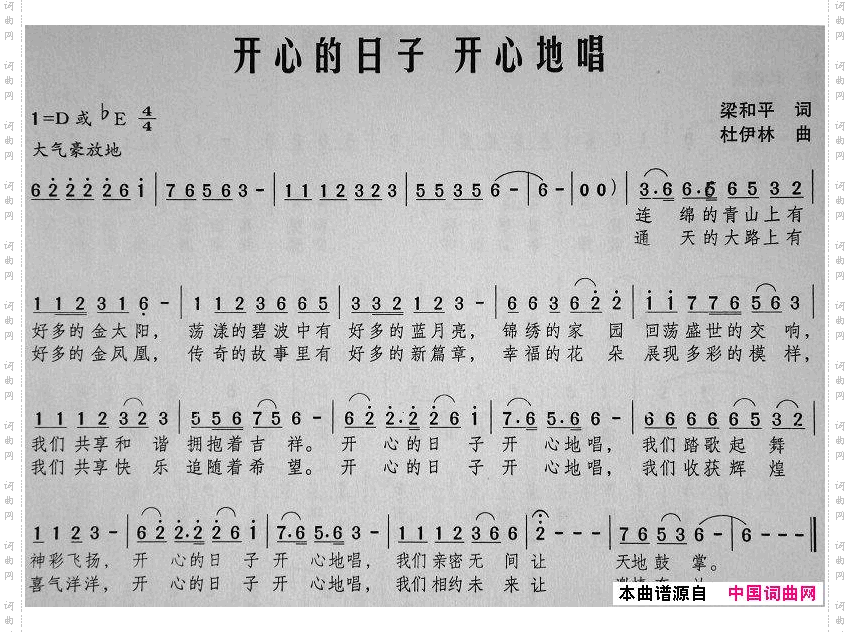 开心的日子 开心地唱
1=D 或 ♭E 4/4
梁和平 词
杜伊林 曲
大气豪放地
6 2 2 2 2 2 6 1 | 7 6 5 6 3 - | 1 1 1 2 3 2 3 | 5 5 3 5 6 - | 6 - | 0 0 ) | 3 · 6 6 · 5 6 6 5 3 2 |
连 绵的青山上有
通 天的大路上有
1 1 2 3 1 6 - | 1 1 2 3 6 6 5 | 3 3 2 1 2 3 - | 6 6 3 6 2 2 | 1 1 7 7 6 5 6 3 |
好多的金太阳， 荡漾的碧波中有 好多的蓝月亮， 锦绣的家 园 回荡盛世的交 响，
好多的金凤凰， 传奇的故事里有 好多的新篇章， 幸福的花 朵 展现多彩的模 样，
1 1 1 2 3 2 3 | 5 5 6 7 5 6 - | 6 2 2 · 2 2 6 1 | 7 · 6 5 · 6 6 - | 6 6 6 6 6 5 3 2 |
我们共享和 谐 拥抱着吉 祥。 开 心的日 子 开 心地唱， 我们踏歌起 舞
我们共享快 乐 追随着希 望。 开 心的日 子 开 心地唱， 我们收获辉 煌
1 1 2 3 - | 6 2 2 · 2 2 6 1 | 7 · 6 5 · 6 3 - | 1 1 1 2 3 6 6 | 2 - - - | 7 6 5 3 6 - | 6 - - - ‖
神彩飞扬， 开 心的日 子 开 心地唱， 我们亲密无 间让 天地鼓 掌。
喜气洋洋， 开 心的日 子 开 心地唱， 我们相约未 来让
本曲谱源自 中国词曲网
词曲网